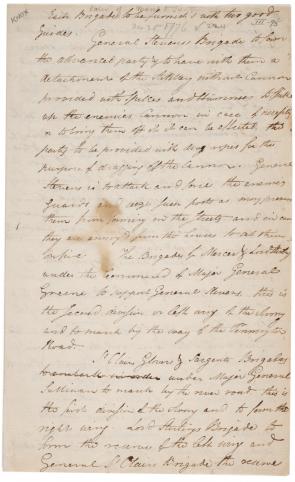 Each Brigade to be furnish'd with two good
Guides.
General Stevens Brigade to form
the advanced party & to have with them a
detachment of the Artillery without Cannon
provided with Spikes and Hammers to Spike
up the enemies Cannon in case of necessity
or to bring them off if it can be effected, the
party to be provided with drag ropes for the
purpose of dragging off the Cannon. General
Stevens is to attack and force the enemies
Guards and seize such posts as may prevent
them from forming in the streets and in case
they are annoy'd from the houses to set them
on fire. The Brigades of Mercer & Lord Stirling
under the command of Major General
Greene to support General Stevens, this is
the second division or left wing of the Army
and to march by the way of the Pennington
Road.
St Clairs Glovers & Sargents Brigades
under Major General
Sullivan to march by the river road, this is
the first division of the Army and to form the
right wing. Lord Stirlings Brigade to
form the reserve of the left wing and
General St Clairs Brigade the reserve